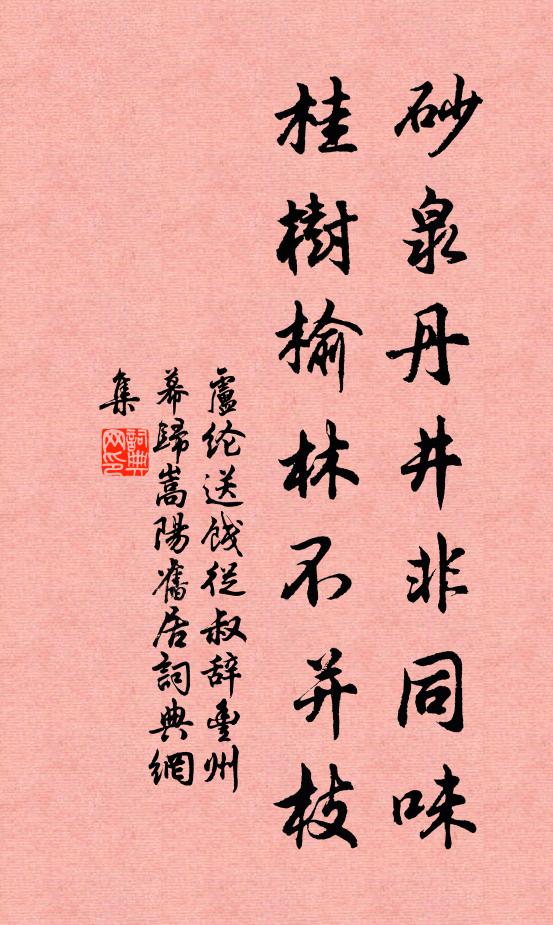 砂泉丹井非同味
桂樹榆林不并枝
盧纶送餞從叔辞豊州
幕歸嵩陽舊居詞典網
集
詞典网印